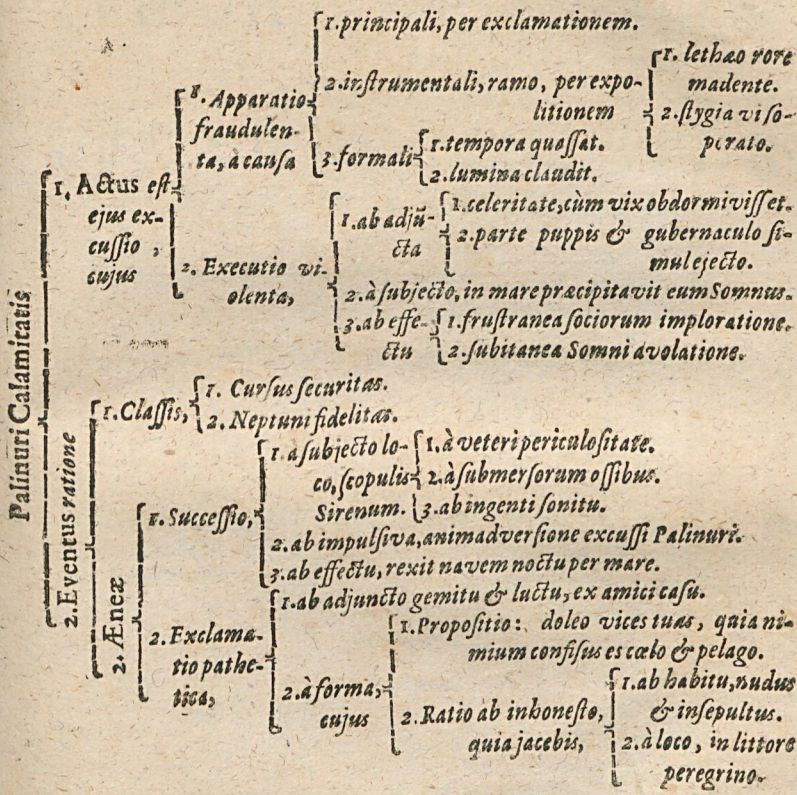 Palinuri Calamitatis
1. Actus est
ejus ex-
cussio,
cujus
1. Apparatio
fraudulen-
ta, à causa
1. principali, per exclamationem.
2. instrumentali, ramo, per expo-
litionem
1. lethæo rore
madente.
2. stygia vi so-
porato.
3. formali
1. tempora quassat.
2. lumina claudit.
2. Executio vi-
olenta,
1. ab adjũ-
cta
1. celeritate, cùm vix obdormivisset.
2. parte puppis & gubernaculo si-
mul ejecto.
2. à subjecto, in mare præcipitavit eum Somnus.
3. ab effe-
ctu
1. frustranea sociorum imploratione.
2. subitanea Somni avolatione.
2. Eventus ratione
1. Classis,
1. Cursus securitas.
2. Neptuni fidelitas.
2. Æneæ
1. Successio,
1. a subjecto lo-
co, scopulis
Sirenum.
1. à veteri periculositate.
2. à submersorum ossibus.
3. ab ingenti sonitu.
2. ab impulsiva, animadversione excussi Palinuri.
3. ab effectu, rexit navem noctu per mare.
2. Exclama-
tio pathe-
tica,
1. ab adjuncto gemitu & luctu, ex amici casu.
2. à forma,
cujus
1. Propositio: doleo vices tuas, quia ni-
mium confisus es cœlo & pelago.
2. Ratio ab inhonesto,
quia jacebis,
1. ab habitu, nudus
& insepultus.
2. à loco, in littore
peregrino.